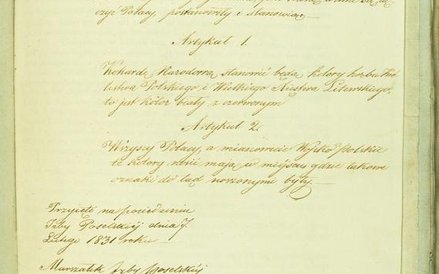 czyć Polacy, postanowiły i stanowią:
Artykuł 1.
Kokardę Narodową stanowić będą kolory herbu Kró
lestwa Polskiego i Wielkiego Xięstwa Litewskiego,
to jest kolor biały z czerwonym
Artykuł 2.
Wszyscy Polacy, a mianowicie Woysko Polskie
te kolory nosić mają w miejscu gdzie takowe
oznaki do tąd noszonymi były.
Przyjęto na posiedzeniu
Izby Poselskiej dnia 7.
Lutego 1831 roku
Marszałek Izby Poselskiej